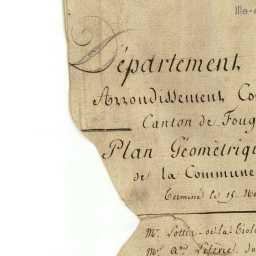 Département
Arrondissement Co
Canton de Foug
Plan Géométriqu
de la Commune
Terminé le 15
Mr. Lottin
Mr. Lefevre